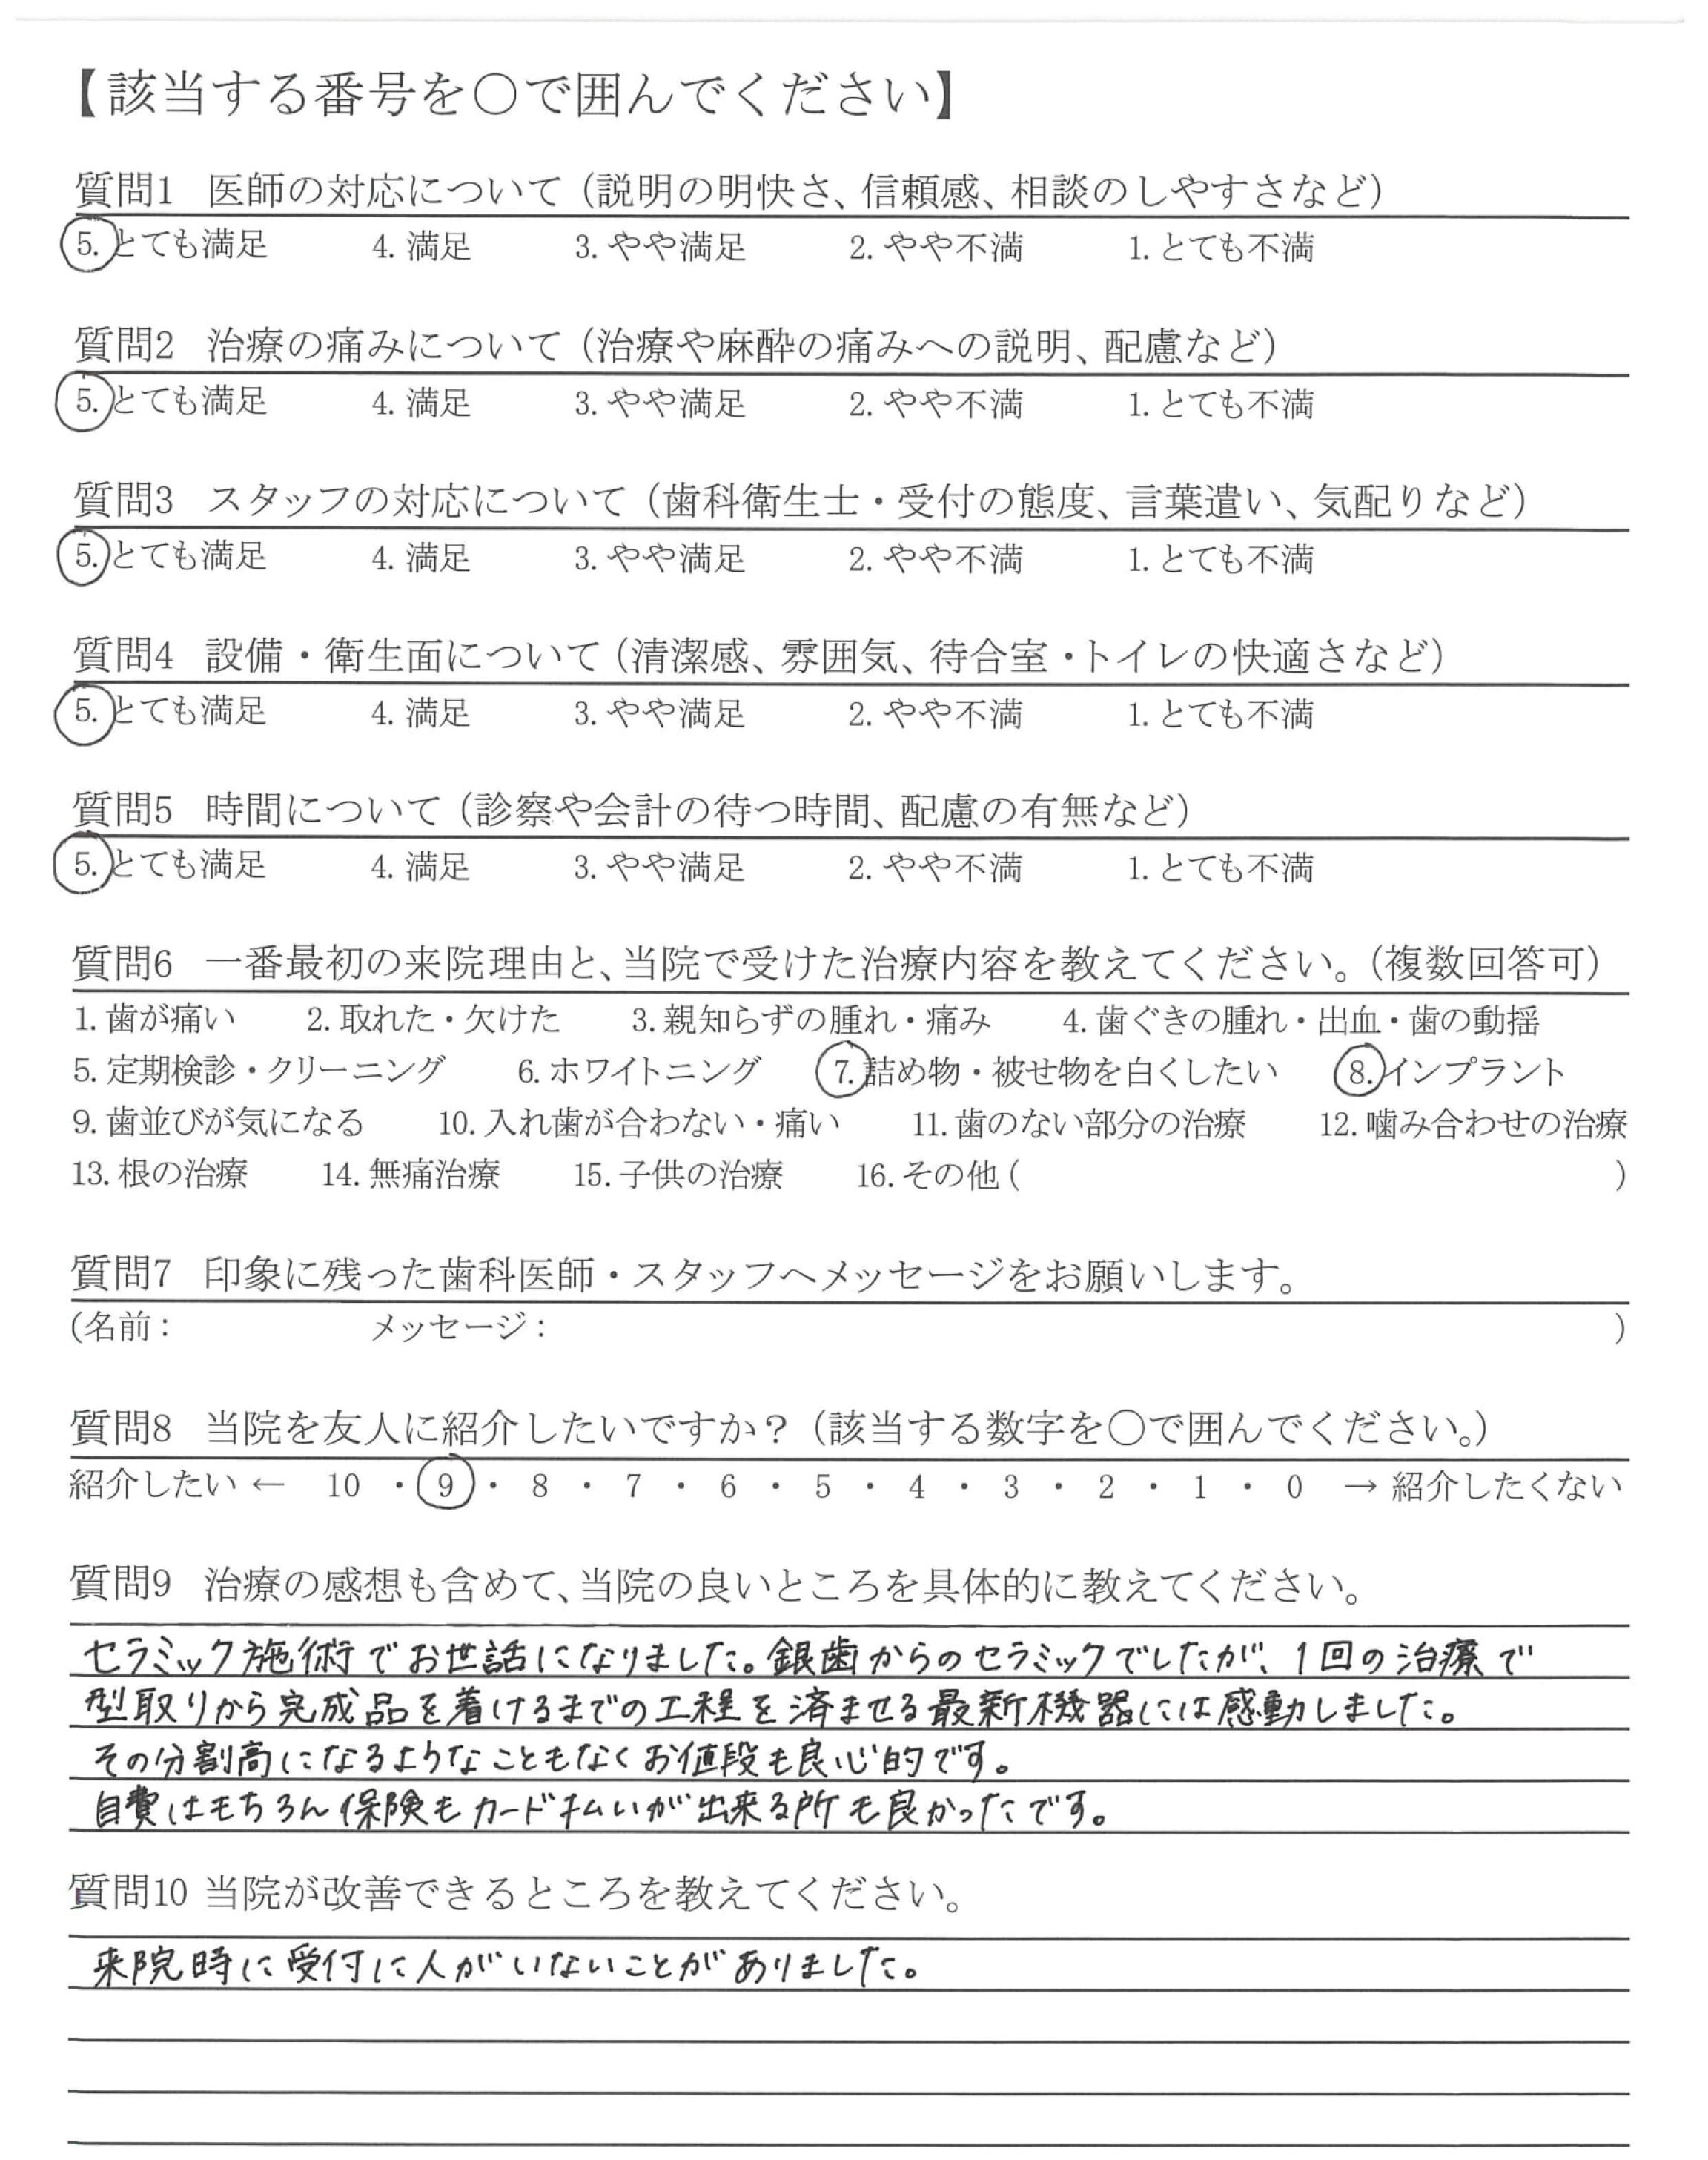 【該当する番号を○で囲んでください】
質問1 医師の対応について（説明の明快さ、信頼感、相談のしやすさなど）
5.とても満足 4.満足 3.やや満足 2.やや不満 1.とても不満
質問2 治療の痛みについて（治療や麻酔の痛みへの説明、配慮など）
5.とても満足 4.満足 3.やや満足 2.やや不満 1.とても不満
質問3 スタッフの対応について（歯科衛生士・受付の態度、言葉遣い、気配りなど）
5.とても満足 4.満足 3.やや満足 2.やや不満 1.とても不満
質問4 設備・衛生面について（清潔感、雰囲気、待合室・トイレの快適さなど）
5.とても満足 4.満足 3.やや満足 2.やや不満 1.とても不満
質問5 時間について（診察や会計の待つ時間、配慮の有無など）
5.とても満足 4.満足 3.やや満足 2.やや不満 1.とても不満
質問6 一番最初の来院理由と、当院で受けた治療内容を教えてください。（複数回答可）
1.歯が痛い 2.取れた・欠けた 3.親知らずの腫れ・痛み 4.歯ぐきの腫れ・出血・歯の動揺
5.定期検診・クリーニング 6.ホワイトニング 7.詰め物・被せ物を白くしたい 8.インプラント
9.歯並びが気になる 10.入れ歯が合わない・痛い 11.歯のない部分の治療 12.噛み合わせの治療
13.根の治療 14.無痛治療 15.子供の治療 16.その他（ ）
質問7 印象に残った歯科医師・スタッフへメッセージをお願いします。
（名前： メッセージ： ）
質問8 当院を友人に紹介したいですか？（該当する数字を○で囲んでください。）
紹介したい ← 10 ・ 9 ・ 8 ・ 7 ・ 6 ・ 5 ・ 4 ・ 3 ・ 2 ・ 1 ・ 0 → 紹介したくない
質問9 治療の感想も含めて、当院の良いところを具体的に教えてください。
セラミック施術でお世話になりました。銀歯からのセラミックでしたが、1回の治療で
型取りから完成品を着けるまでの工程を済ませる最新機器には感動しました。
その分割高になるようなこともなくお値段も良心的です。
自費はもちろん保険もカード払いが出来る所も良かったです。
質問10 当院が改善できるところを教えてください。
来院時に受付に人がいないことがありました。